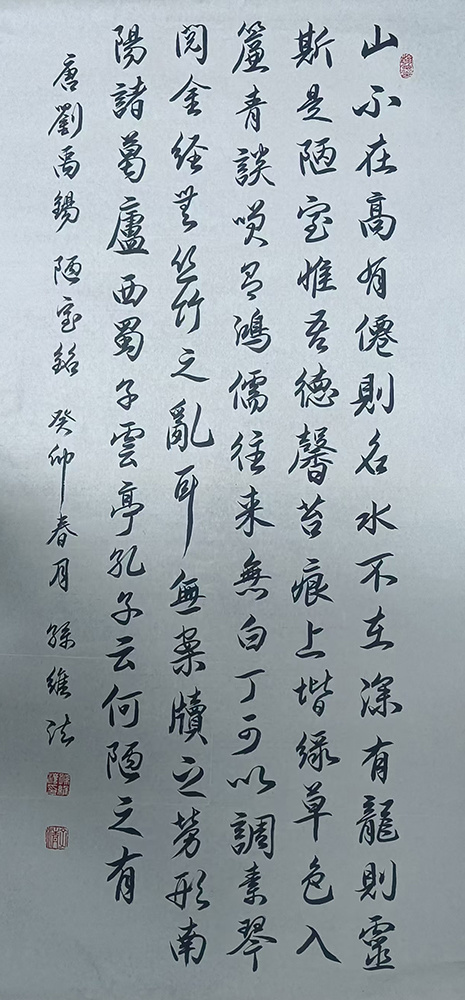 山不在高有僊則名水不在深有龍則靈
斯是陋室惟吾德馨苔痕上堦緑草色入
簾青談咲有鴻儒往来無白丁可以調素琴
閲金経無丝竹之亂耳無案牘之勞形南
陽諸葛廬西蜀子雲亭孔子云何陋之有
唐劉禹錫陋室銘 癸卯春月 孫維法